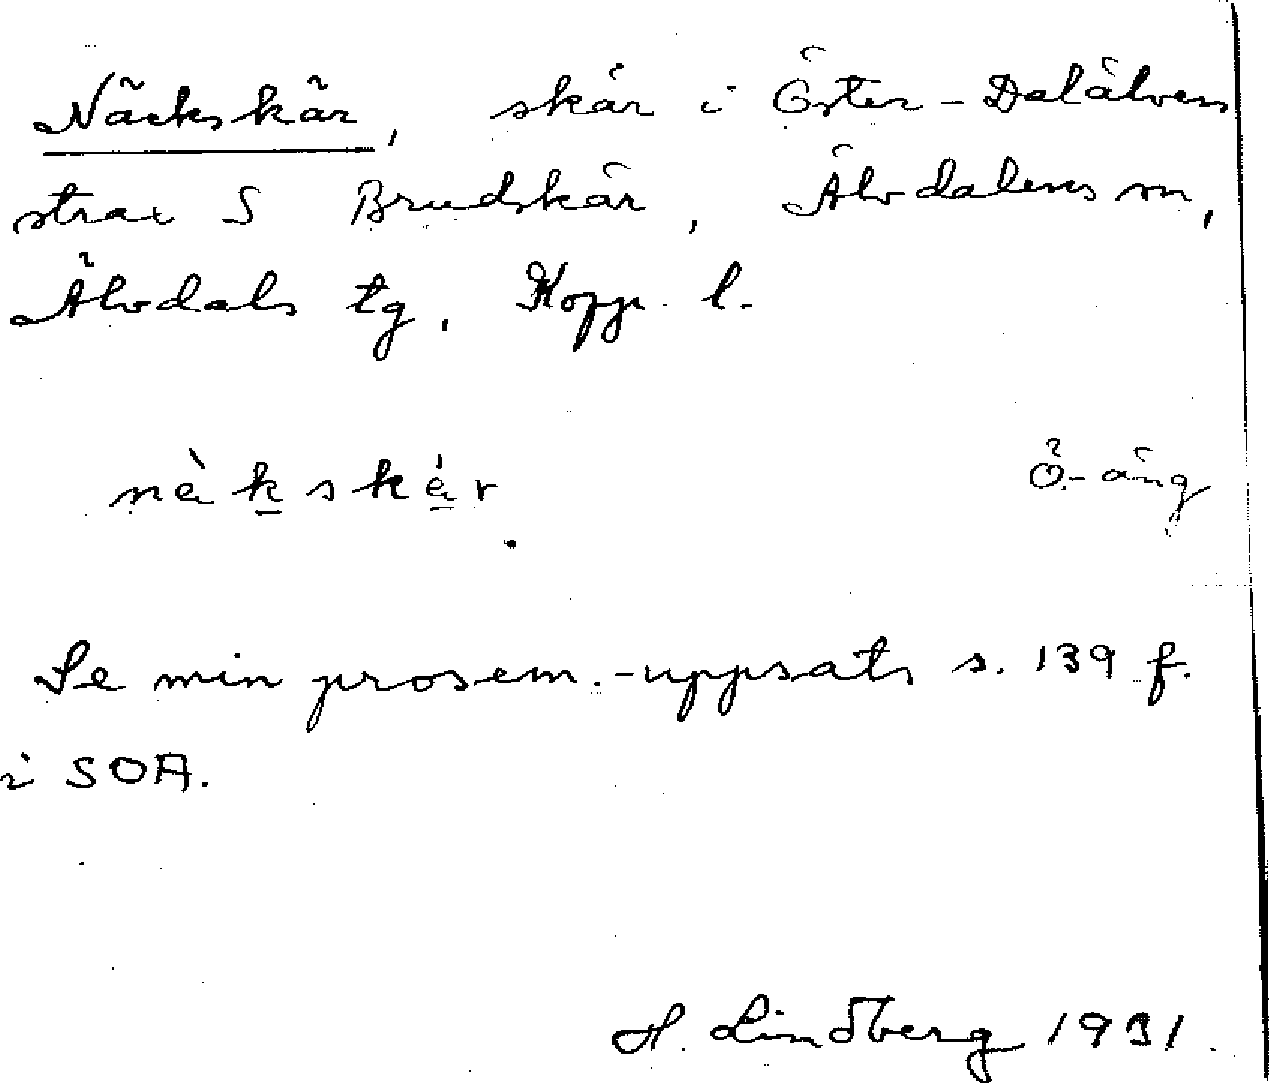 Näckskär, skär i Öster-Dalälven
strax S Brudskär, Älvdalens sn,
Älvdals tg, Kopp. l.
nàkskár
Ö.-äng
Se min prosem.-uppsats s. 139 f.
i SOA.
H. Lindberg 1931.